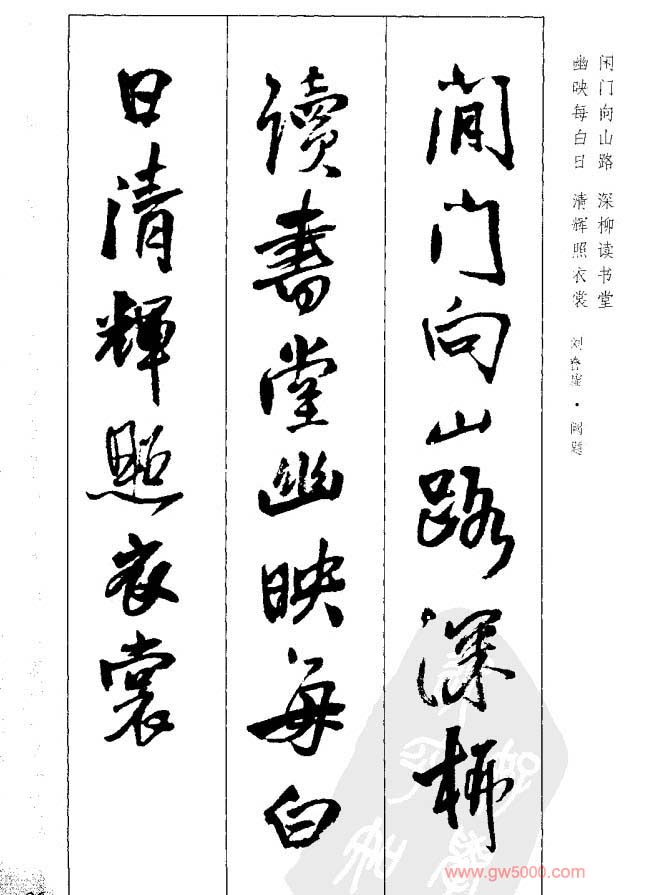 闲门向山路 深柳读书堂
幽映每白日 清辉照衣裳
刘昚虚·阙题
閒门向山路深柳
讀書堂幽映每白
日清輝照衣裳
www.gw5000.com